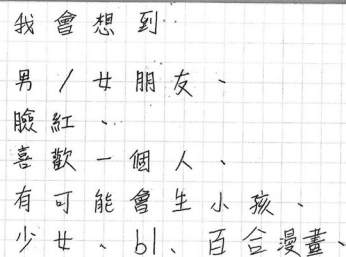 我會想到..
男/女朋友、
臉紅、
喜歡一個人、
有可能會生小孩、
少女、bl、百合漫畫、